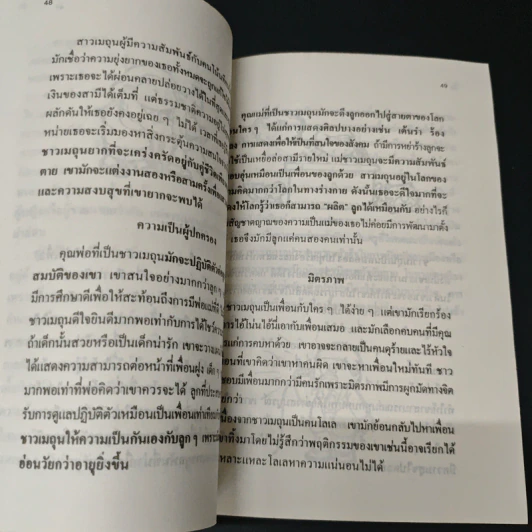 48
สาวเมถุนผู้มีความสัมพันธ์กับคนโ
มักเชื่อว่าความยุ่งยากของเธอทั้งหมดจะถูก
เพราะเธอจะได้ผ่อนคลายปล่อยวางได้ในที่สุด
เงินของสามีได้เต็มที่ แต่ธรรมชาติความอยู่ไ
ผลักดันให้เธอยังคงอยู่เฉย ๆ ไม่ได้ เวลา
หน่ายเธอจะเริ่มมองหาสิ่งกระตุ้นความสนใจ
ชาวเมถุนยากที่จะเคร่งครัดอยู่กับคู่ชีวิต
ตาย เขามักจะแต่งงานสองหรือสามครั้ง
และความสงบสุขที่เขายากจะพบได้
ความเป็นผู้ปกครอง
คุณพ่อที่เป็นชาวเมถุนมักจะปฏิบัติตัว
สมบัติของเขา เขาสนใจอย่างมากกว่าลูก ๆ
มีการศึกษาดีเพื่อให้สะท้อนถึงการมีพ่อแม่ที่ดี
ชาวเมถุนดีใจยินดีมากพอเท่ากับการได้โชว์
ถ้าเด็กนั้นสวยหรือเป็นเด็กน่ารัก เขาจะวาง
ได้แสดงความสามารถต่อหน้าที่เพื่อนฝูง เด็ก ๆ
มากพอเท่าที่พ่อคิดว่าเขาควรจะได้ ลูกที่
รับการดูแลปฏิบัติตัวเหมือนเป็นเพื่อนเท่าเทียม
ชาวเมถุนให้ความเป็นกันเองกับลูก ๆ เพราะ
อ่อนวัยกว่าอายุยิ่งขึ้น
49
คุณแม่ที่เป็นชาวเมถุนมักจะดึงลูกออกไปสู่สายตาของโลก
ใคร ๆ ได้แก่การแสดงศิลปบางอย่างเช่น เต้นรำ ร้อง
การแสดงเพื่อให้เป็นที่สนใจของสังคม ถ้ามีการหย่าร้างลูกจะ
เป็นเหยื่อล่อสามีรายใหม่ แม่ชาวเมถุนจะมีความสัมพันธ์
อบอุ่นเหมือนเป็นเพื่อนของลูกด้วย สาวเมถุนอยู่ในโลกของ
ความคิดมากกว่าโลกทางร่างกาย ดังนั้นเธอจะดีใจมากที่จะ
ให้โลกรู้ว่าเธอก็สามารถ "ผลิต" ลูกได้เหมือนกัน อย่างไรก็
สัญชาตญาณของความเป็นแม่ของเธอไม่ค่อยมีการพัฒนามาตั้ง
เธอจึงมักมีลูกแค่คนสองคนเท่านั้น
มิตรภาพ
ชาวเมถุนเป็นเพื่อนกับใคร ๆ ได้ง่าย ๆ แต่เขามักเรียกร้อง
การไอ้โน่นไอ้นี่เอากับเพื่อนเสมอ และมักเลือกคบคนที่มีคุณ
แก่การคบหาด้วย เขาอาจจะกลายเป็นคนดุร้ายและไร้หัวใจ
เพื่อนที่เขาคิดว่าเขาหาคนผิด เขาจะหาเพื่อนใหม่ทันที ชาว
ชอบมีเพื่อนมากกว่ามีคนรักเพราะมิตรภาพมีการผูกมัดทางจิต
ยกว่า
เนื่องจากชาวเมถุนเป็นคนโลเล เขามักย้อนกลับไปหาเพื่อน
เขาทิ้งมาโดยไม่รู้สึกว่าพฤติกรรมของเขาเช่นนี้อาจเรียกได้
เหลาะแหละโลเลหาความแน่นอนไม่ได้